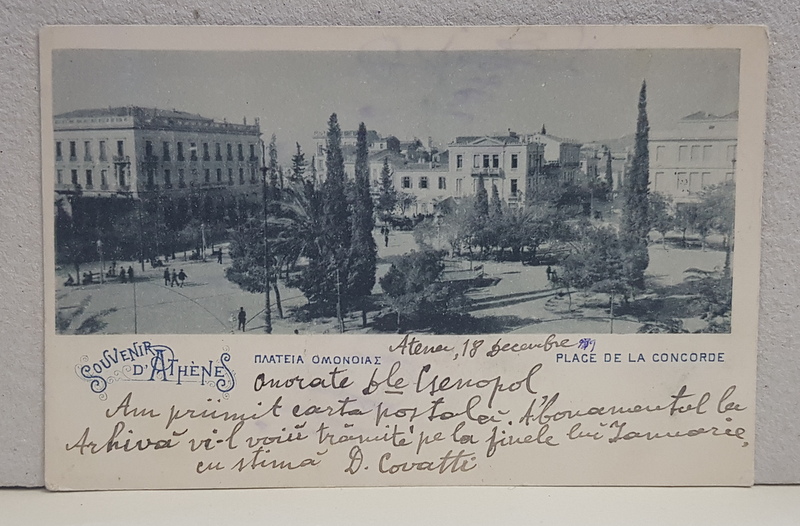 SOUVENIR D'ATHÈNES
ΠΛΑΤΕΙΑ ΟΜΟΝΟΙΑΣ
PLACE DE LA CONCORDE
Atena, 18 Decembre
Onorate Dle Xenopol
Am priimit carta postală. Abonamentul la
Arhivă vi-l voiŭ trămite pe la finele lui Ianuarie,
cu stimă D. Covatti